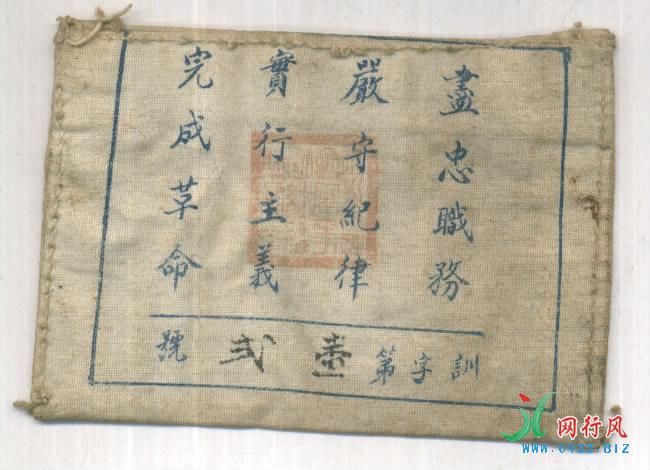 盡忠職務
嚴守紀律
實行主義
完成革命
訓字第壹弍號
网行风
www.0483.BIZ